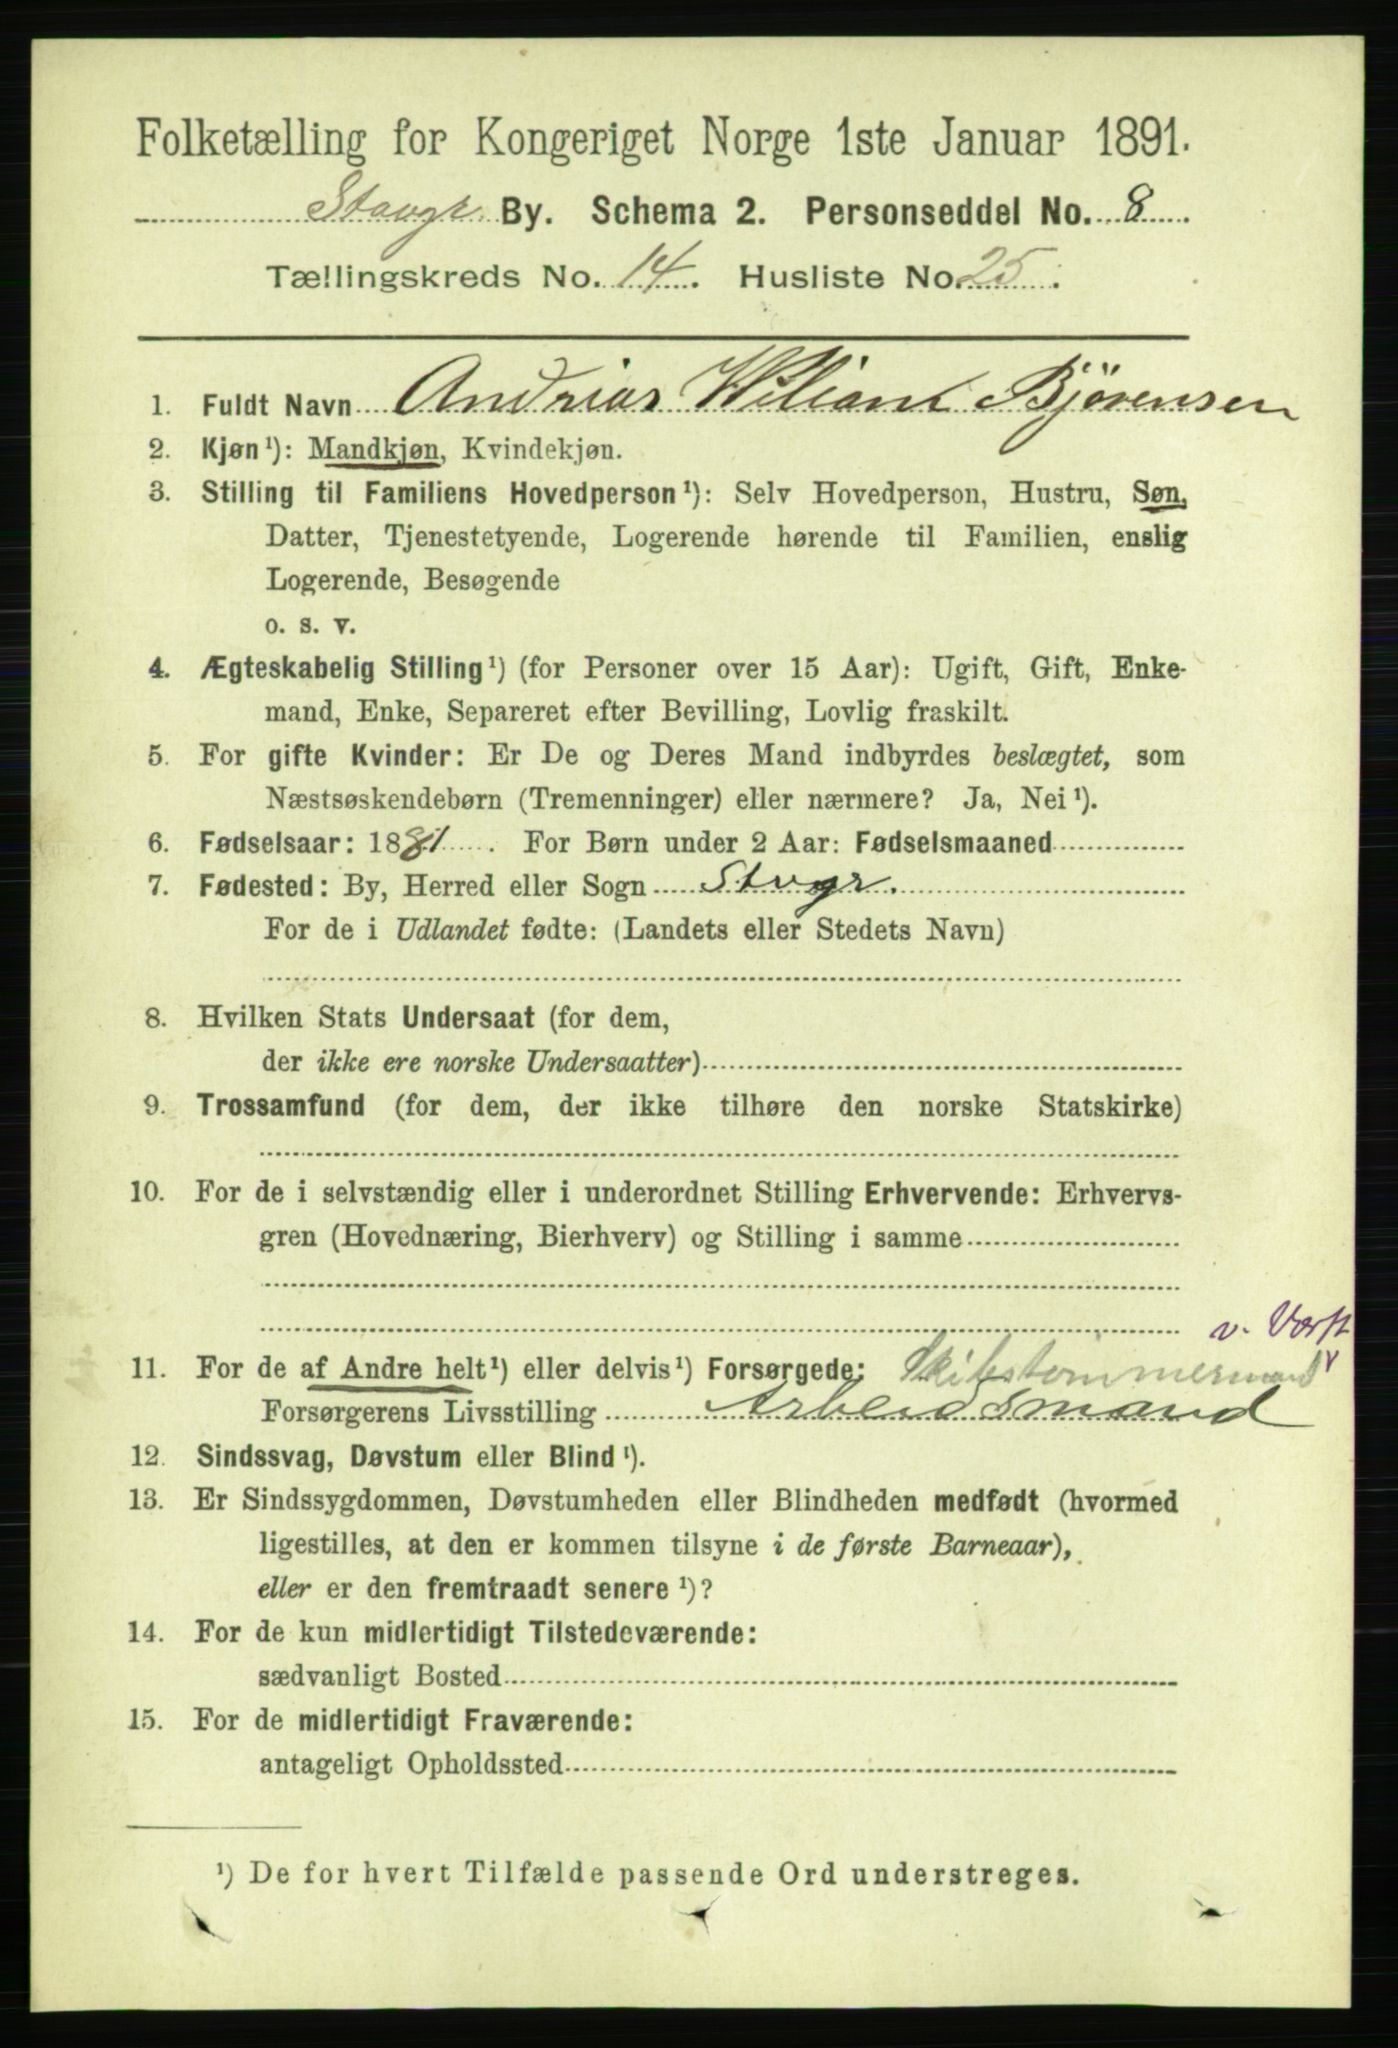 Folketælling for Kongeriget Norge 1ste Januar 1891.
Stavgr By. Schema 2. Personseddel No. 8
Tællingskreds No. 14. Husliste No. 25.
1. Fuldt Navn Andrias Wiliam Bjørensen
2. Kjøn¹): Mandkjøn, Kvindekjøn.
3. Stilling til Familiens Hovedperson¹): Selv Hovedperson, Hustru, Søn,
Datter, Tjenestetyende, Logerende hørende til Familien, enslig
Logerende, Besøgende
o. s. v.
4. Ægteskabelig Stilling¹) (for Personer over 15 Aar): Ugift, Gift, Enke-
mand, Enke, Separeret efter Bevilling, Lovlig fraskilt.
5. For gifte Kvinder: Er De og Deres Mand indbyrdes beslægtet, som
Næstsøskendebørn (Tremenninger) eller nærmere? Ja, Nei¹).
6. Fødselsaar: 1881. For Børn under 2 Aar: Fødselsmaaned
7. Fødested: By, Herred eller Sogn Stvgr.
For de i Udlandet fødte: (Landets eller Stedets Navn)
8. Hvilken Stats Undersaat (for dem,
der ikke ere norske Undersaatter)
9. Trossamfund (for dem, der ikke tilhøre den norske Statskirke)
10. For de i selvstændig eller i underordnet Stilling Erhvervende: Erhvervs-
gren (Hovednæring, Bierhverv) og Stilling i samme
v. Værft
11. For de af Andre helt¹) eller delvis¹) Forsørgede: Skibstømmermand
Forsørgerens Livsstilling Arbeidsmand
12. Sindssvag, Døvstum eller Blind¹).
13. Er Sindssygdommen, Døvstumheden eller Blindheden medfødt (hvormed
ligestilles, at den er kommen tilsyne i de første Barneaar),
eller er den fremtraadt senere¹)?
14. For de kun midlertidigt Tilstedeværende:
sædvanligt Bosted
15. For de midlertidigt Fraværende:
antageligt Opholdssted
¹) De for hvert Tilfælde passende Ord understreges.